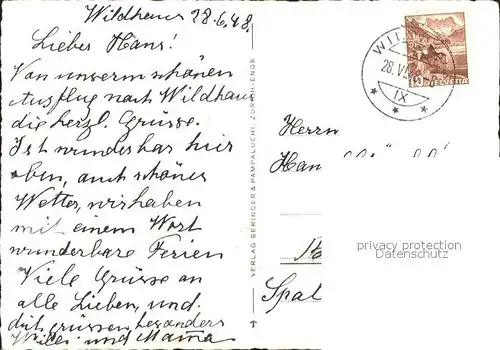 Wildhaus 28.6.48.
Lieber Hans!
Von unserm schönen
Ausflug nach Wildhaus
die herzl. Grüsse.
Ist wunderbar hier
oben, auch schönes
Wetter, wir haben
mit einem Wort
wunderbare Ferien
Viele Grüsse an
alle Lieben, und
dich grüssen besonders
und Mama
VERLAG BERINGER & PAMPALUCHI, ZÜRICH-ENGE
28.VI.
IX
10
HELVETIA
Herrn
Han
privacy protection
Datenschutz
Spal